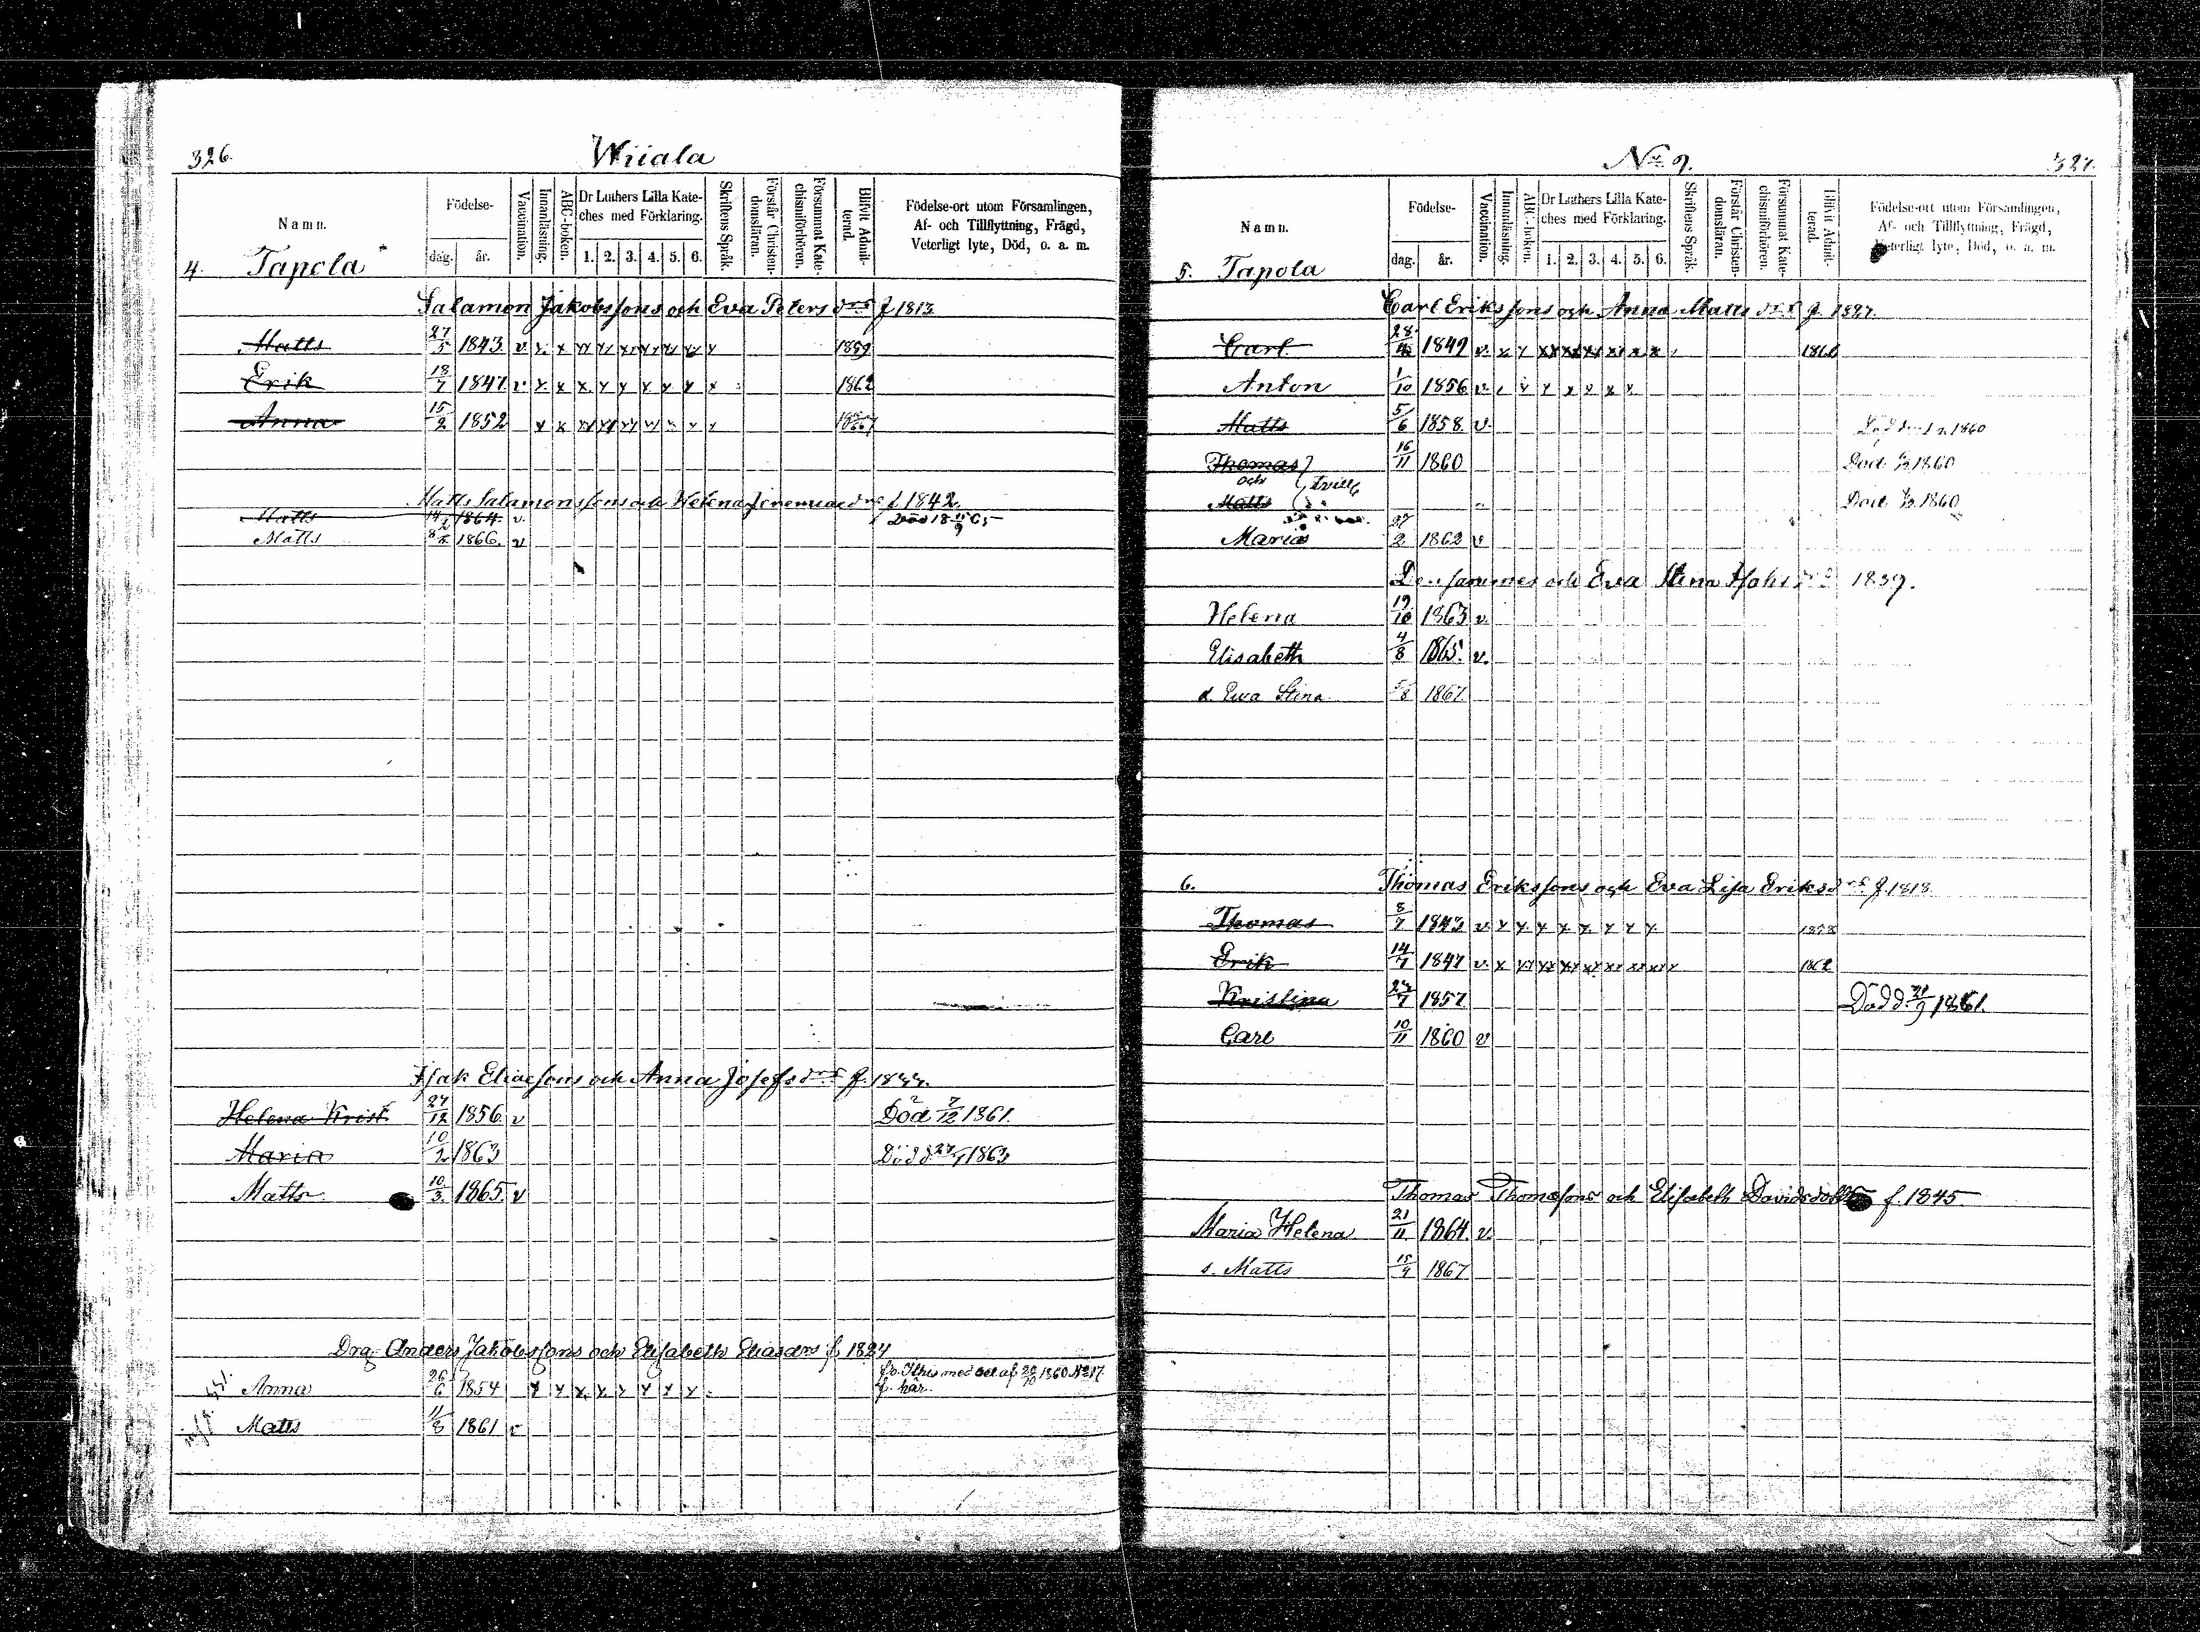 326.
Wiiala
Namn.
Födelse-
dag.
år.
Vaccination.
Innanläsning.
ABC-boken.
Dr Luthers Lilla Kate-
ches med Förklaring.
1. 2. 3. 4. 5. 6.
Skriftens Språk.
Förstår Christen-
domsläran.
Försummat Kate-
chismiförhören.
Blifvit Admit-
terad.
Födelse-ort utom Församlingen,
Af- och Tillflyttning, Frägd,
Veterligt lyte, Död, o. a. m.
4. Tapola
Salamon Jakobssons och Eva Petersdrs f 1813
Matts 27/5 1843 v x x xx xx xx xx xx xx x 1859
Erik 18/7 1847 v x x x x x x x x x 1862
Anna 15/2 1852 x x xx xx xx xx x x x
Matts Salamonssons och Helena Jeremiaedrs f. 1842.
Matts 1864 v. Död
Matts 1866. v
Isak Eliaesons och Anna Josefsdrs f.
Helena Krist 27/12 1856 v Död 7/12 1861.
Maria 10/2 1863 Död d 1863
Matts 10/3 1865. v
Drag Anders Jakobssons och Elisabeth Eliasdrs f 1824
Anna 26/6 1854 x x x x x x x x med bet. af 20/10 1860 No 17.
f. här.
Matts 11/8 1861 v
No 9.
327.
Namn.
Födelse-
dag.
år.
Vaccination.
Innanläsning.
ABC-boken.
Dr Luthers Lilla Kate-
ches med Förklaring.
1. 2. 3. 4. 5. 6.
Skriftens Språk.
Förstår Christen-
domsläran.
Försummat Kate-
chismiförhören.
Blifvit Admit-
terad.
Födelse-ort utom Församlingen,
Af- och Tillflyttning, Frägd,
Veterligt lyte, Död, o. a. m.
5. Tapola
Carl Erikssons och Anna Mattsdrs f. 1827.
Carl 1849 v. x x xx xx xx xx x x
Anton 1/10 1856 v. x x x x x x
Matts 5/6 1858. v. 1860
Thomas 16/11 1860 Död 1860
och tvill
Matts Död 1860
Maria 27/2 1862 v
Densammes och Eva Stina 1839.
Helena 19/10 1863 v.
Elisabeth 4/8 1865. v.
d. Ewa Stina 1867
6. Thomas Erikssons och Eva Lisa Eriksdrs f. 1818
Thomas 8/7 1843 v. x x x x x x x x 1858
Erik 14/7 1847 v. x xx xx xx xx xx xx xx 1862
Kristina 1857 Död d. 1861.
Carl 10/11 1860 v
Thomas Thomasons och Elisabeth f. 1845
Maria Helena 21/11 1864. v.
s. Matts 1867